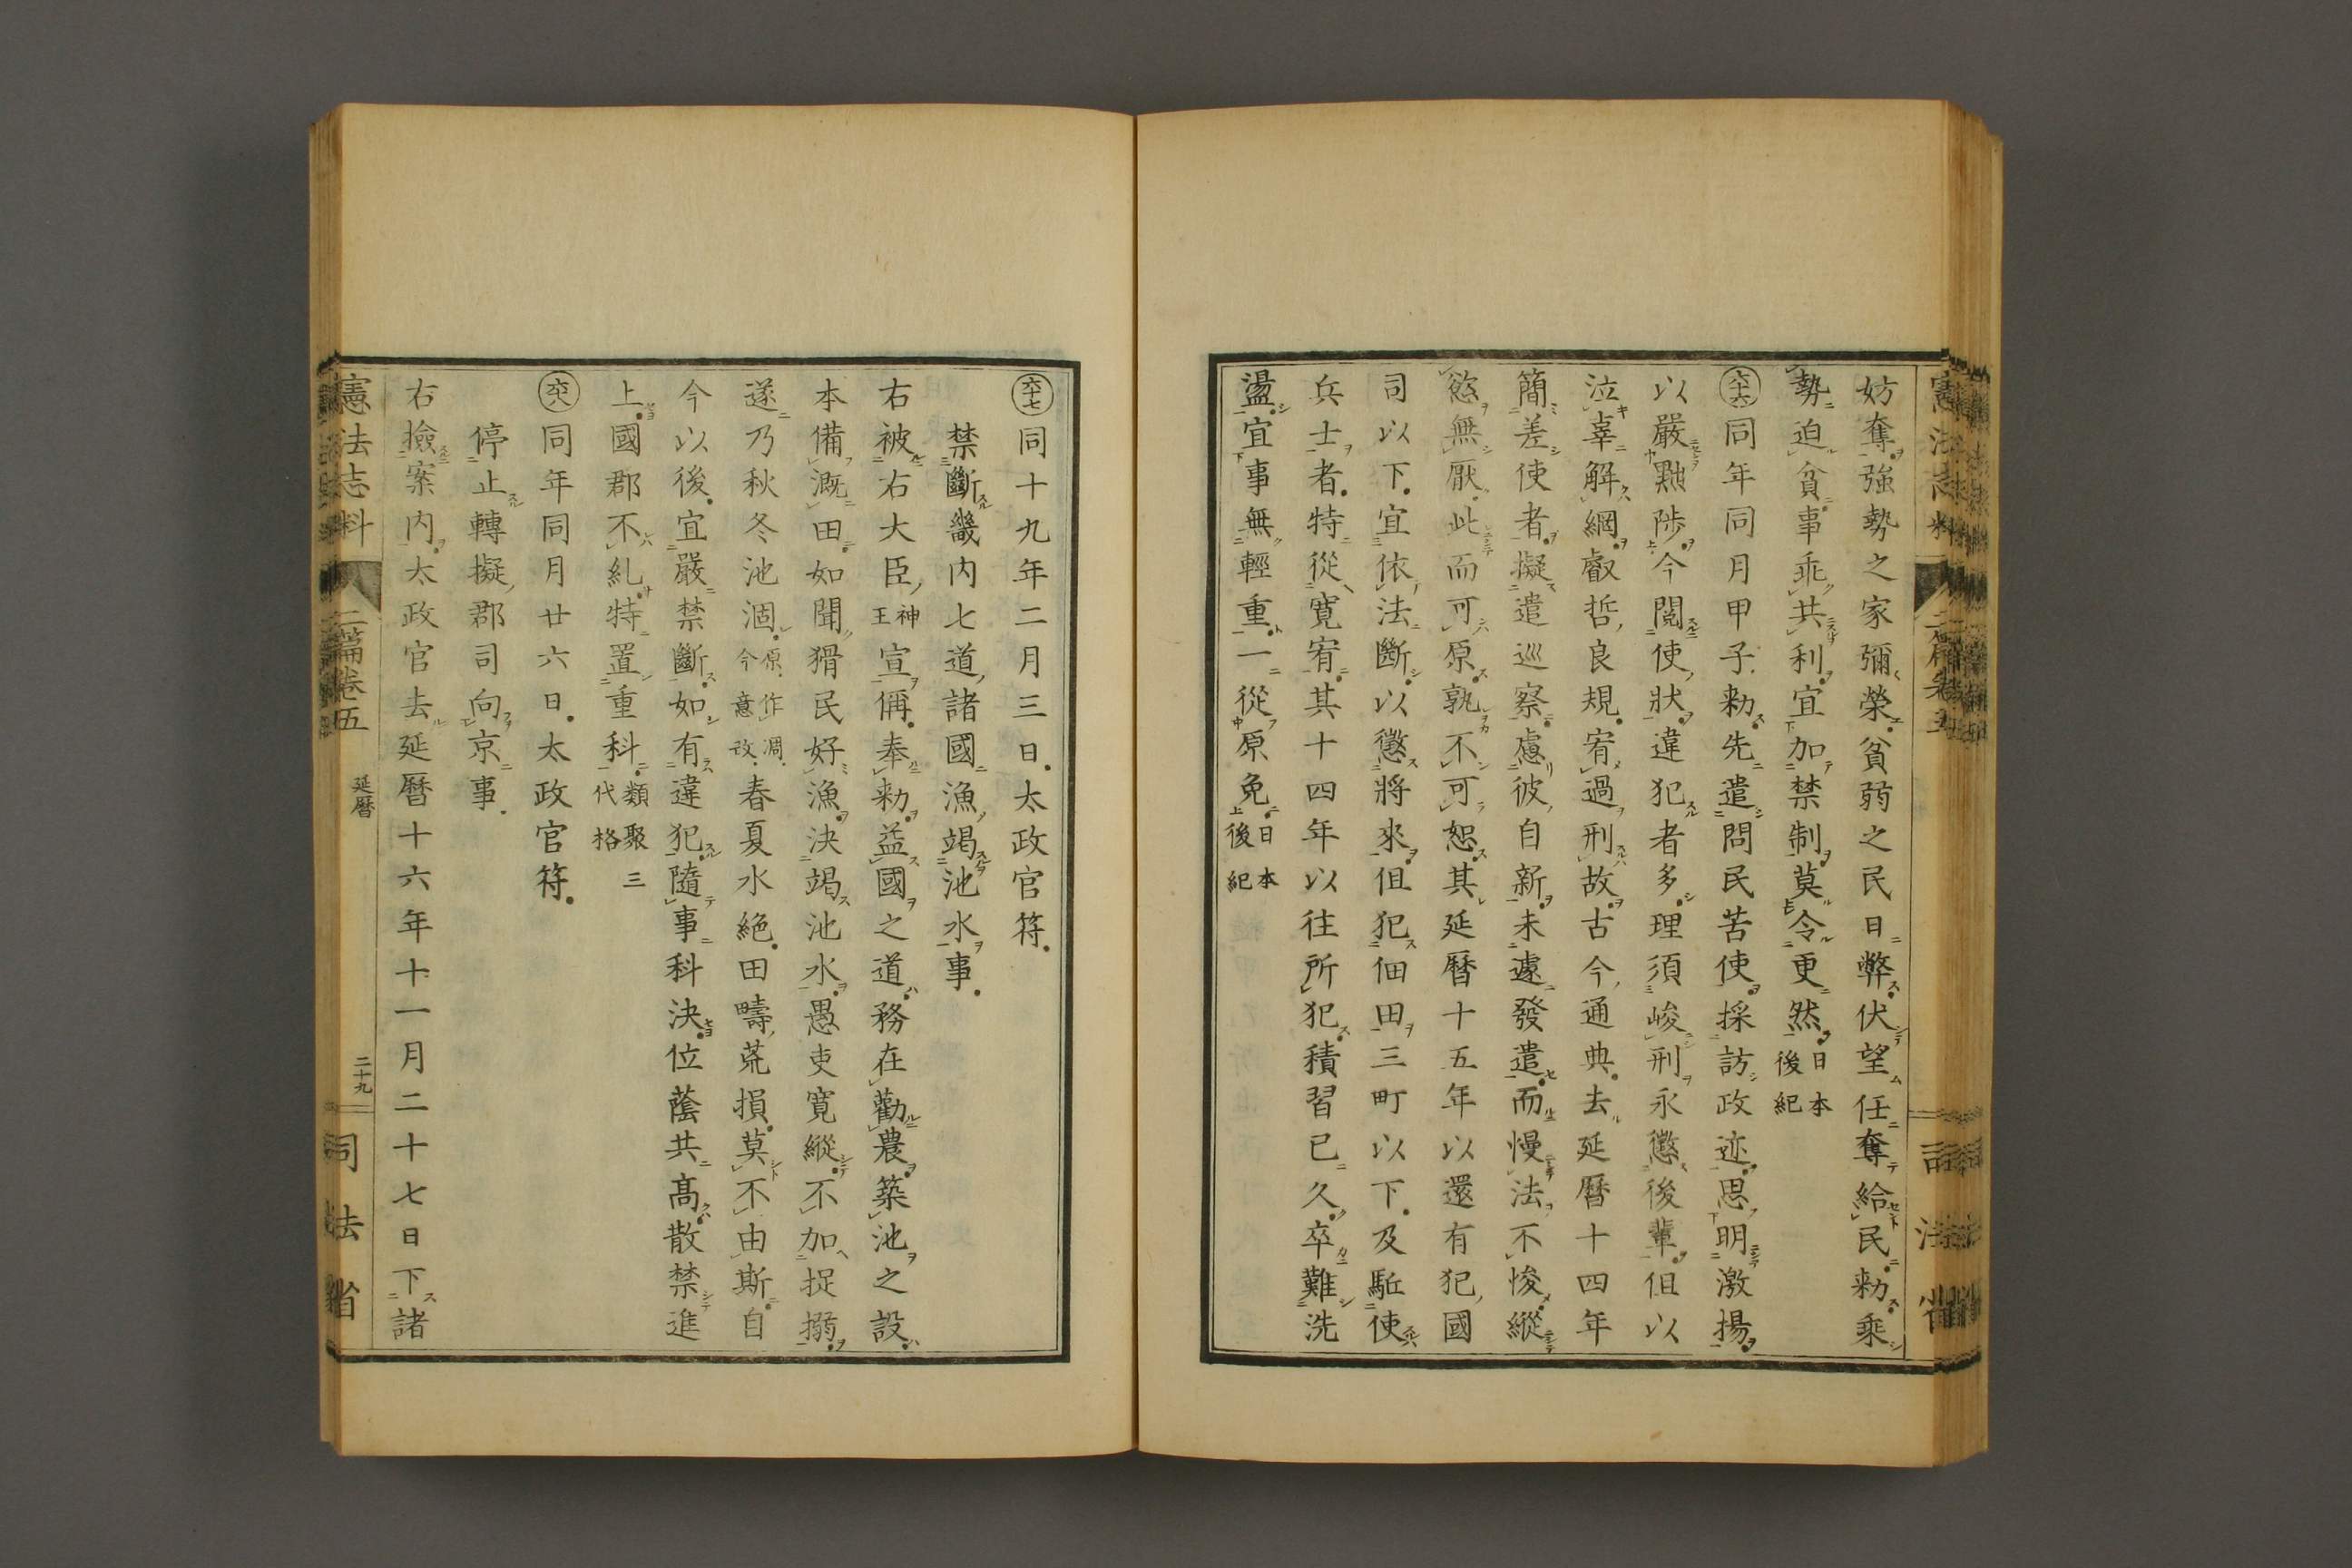 妨奪強勢之家彌榮貧弱之民日弊伏望任奪給民勅乘
勢迫貧事乖共利宜加禁制莫令更然日本後紀
六十六同年同月甲子勅先遣問民苦使採訪政迹思明激揚
以嚴黜陟今閱使狀違犯者多理須峻刑永懲後輩但以
泣辜解網叡哲良規宥過刑故古今通典去延曆十四年
簡差使者擬遣巡察慮彼自新未遽發遣而慢法不悛縱
慾無厭此而可原孰不可恕其延曆十五年以還有犯國
司以下宜依法斷以懲將來但犯佃田三町以下及駈使
兵士者特從寬宥其十四年以往所犯積習已久卒難洗
盪宜事無輕重一從原免日本後紀
六十七同十九年二月三日太政官符
禁斷畿内七道諸國漁竭池水事
右被右大臣神王宣偁奉勅益國之道務在勸農築池之設
本備漑田如聞猾民好漁決竭池水愚吏寬縱不加捉搦
遂乃秋冬池涸原作凋今意改春夏水絕田疇荒損莫不由斯自
今以後宜嚴禁斷如有違犯隨事科決位蔭共高散禁進
上國郡不糺特置重科類聚三代格
六十八同年同月廿六日太政官符
停止轉擬郡司向京事
右撿案内太政官去延曆十六年十一月二十七日下諸
憲法志料 二篇卷五 延曆 二十九 司法省